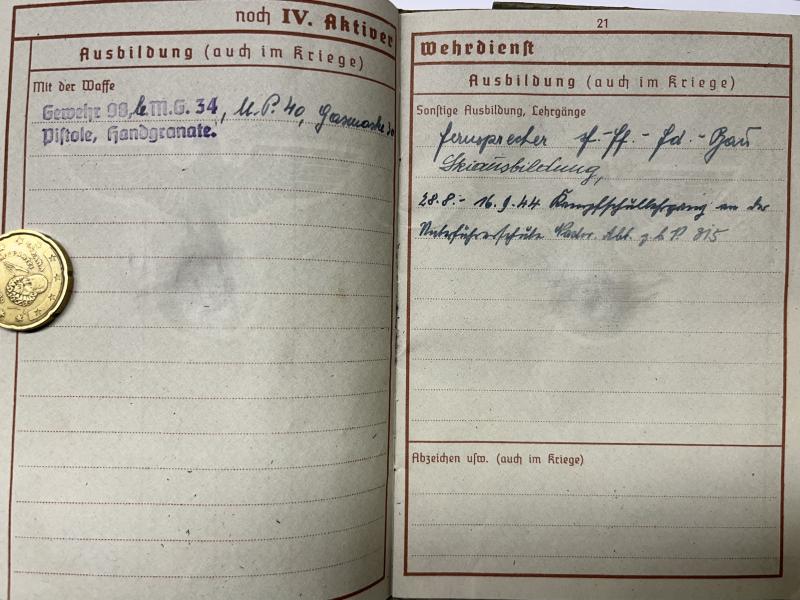 noch IV. Aktiver
Ausbildung (auch im Kriege)
Mit der Waffe
Gewehr 98, le M.G. 34, M.P. 40, Gasmaske 30
Pistole, Handgranate.
21
Wehrdienst
Ausbildung (auch im Kriege)
Sonstige Ausbildung, Lehrgänge
Fernsprecher
Skiausbildung,
28.8.- 16.9.44 Kampfschullehrgang an der
Unterführerschule
Abzeichen usw. (auch im Kriege)